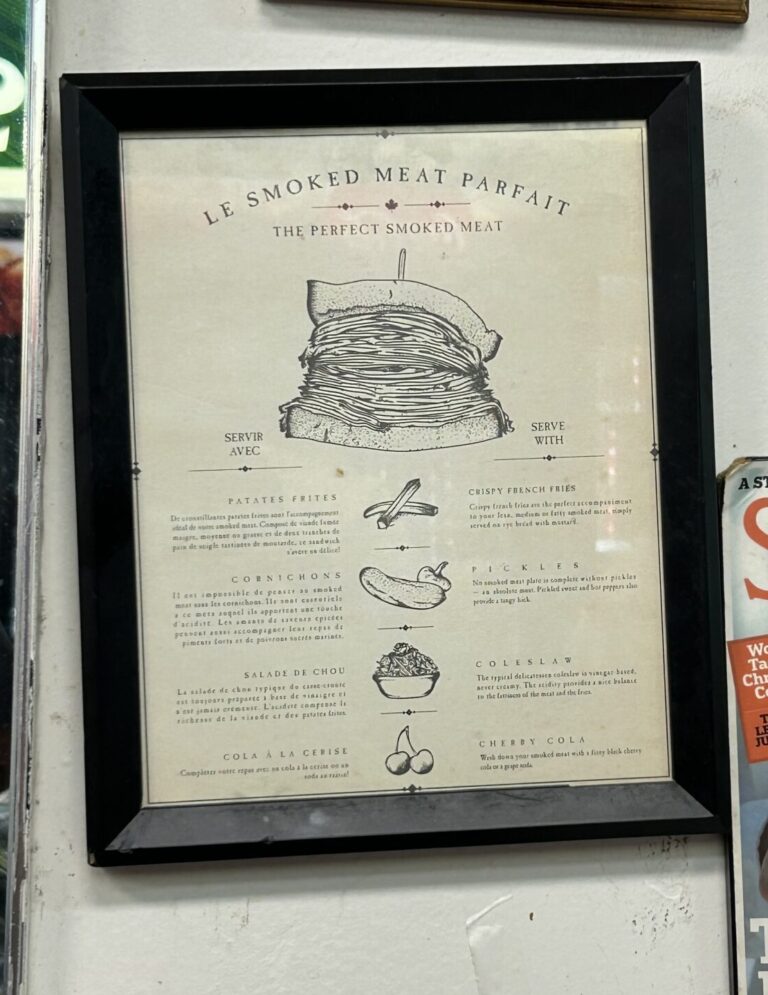 LE SMOKED MEAT PARFAIT
THE PERFECT SMOKED MEAT
SERVIR
AVEC
SERVE
WITH
PATATES FRITES
De croustillantes patates frites sont l'accompagnement
idéal de notre smoked meat. Composé de viande fumée
maigre, moyenne ou grasse et de deux tranches de
pain de seigle tartinées de moutarde, ce sandwich
s'avère un délice!
CRISPY FRENCH FRIES
Crispy french fries are the perfect accompaniment
to your lean, medium or fatty smoked meat, simply
served on rye bread with mustard.
CORNICHONS
Il est impossible de penser au smoked
meat sans les cornichons. Ils sont essentiels
à ce mets auquel ils apportent une touche
d'acidité. Les amants de saveurs épicées
peuvent aussi accompagner leur repas de
piments forts et de poivrons sucrés marinés.
PICKLES
No smoked meat plate is complete without pickles
— an absolute must. Pickled sweet and hot peppers also
provide a tangy kick.
SALADE DE CHOU
La salade de chou typique du casse-croûte
est toujours préparée à base de vinaigre et
n'est jamais crémeuse. L'acidité compense la
richesse de la viande et des patates frites.
COLESLAW
The typical delicatessen coleslaw is vinegar based,
never creamy. The acidity provides a nice balance
to the fattiness of the meat and the fries.
COLA À LA CERISE
Complétez votre repas avec un cola à la cerise ou un
soda au raisin!
CHERRY COLA
Wash down your smoked meat with a fizzy black cherry
cola or a grape soda.
A ST
S
Wo
Ta
Chr
Co
T
LE
JU